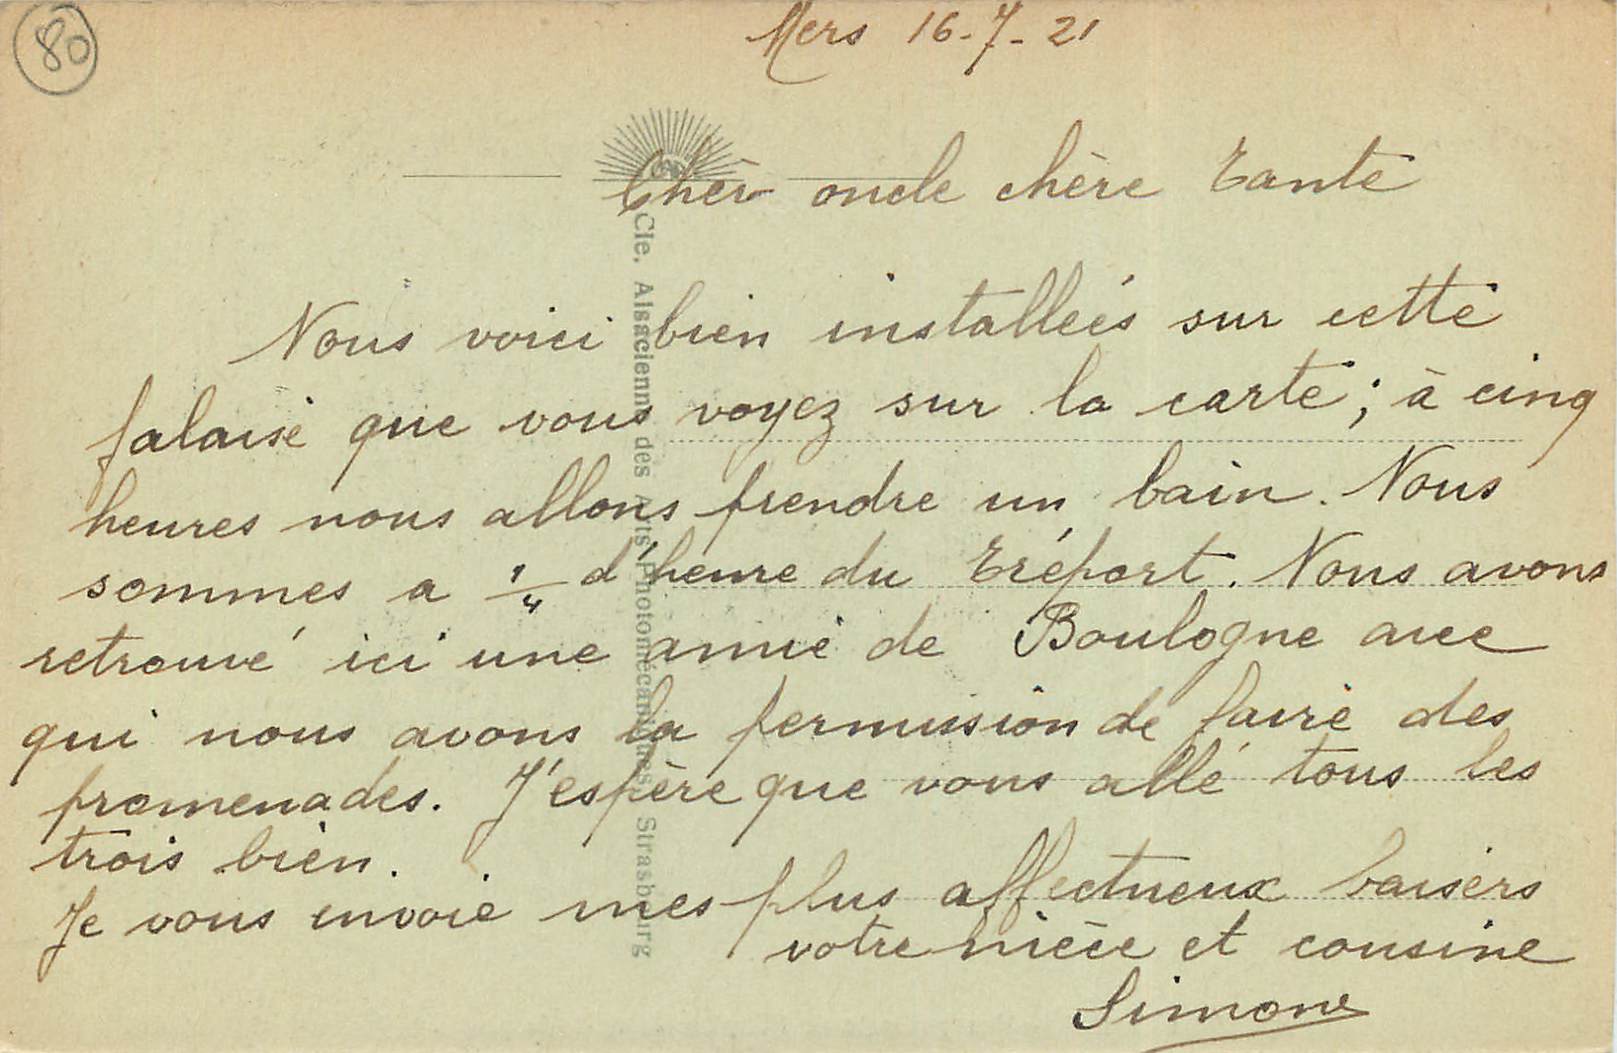 80
Mers 16-7-21
Chèr oncle chère Tante
Nous voici bien installées sur cette
falaise que vous voyez sur la carte ; à cinq
heures nous allons prendre un bain. Nous
sommes a 1/4 d'heure du Tréport. Nous avons
retrouvé ici une amie de Boulogne avec
qui nous avons la permission de faire des
promenades. J'espère que vous allé tous les
trois bien.
Je vous envoie mes plus affectueux baisers
votre nièce et cousine
Simone
Cie. Alsacienne des Arts Photomécaniques, Strasbourg